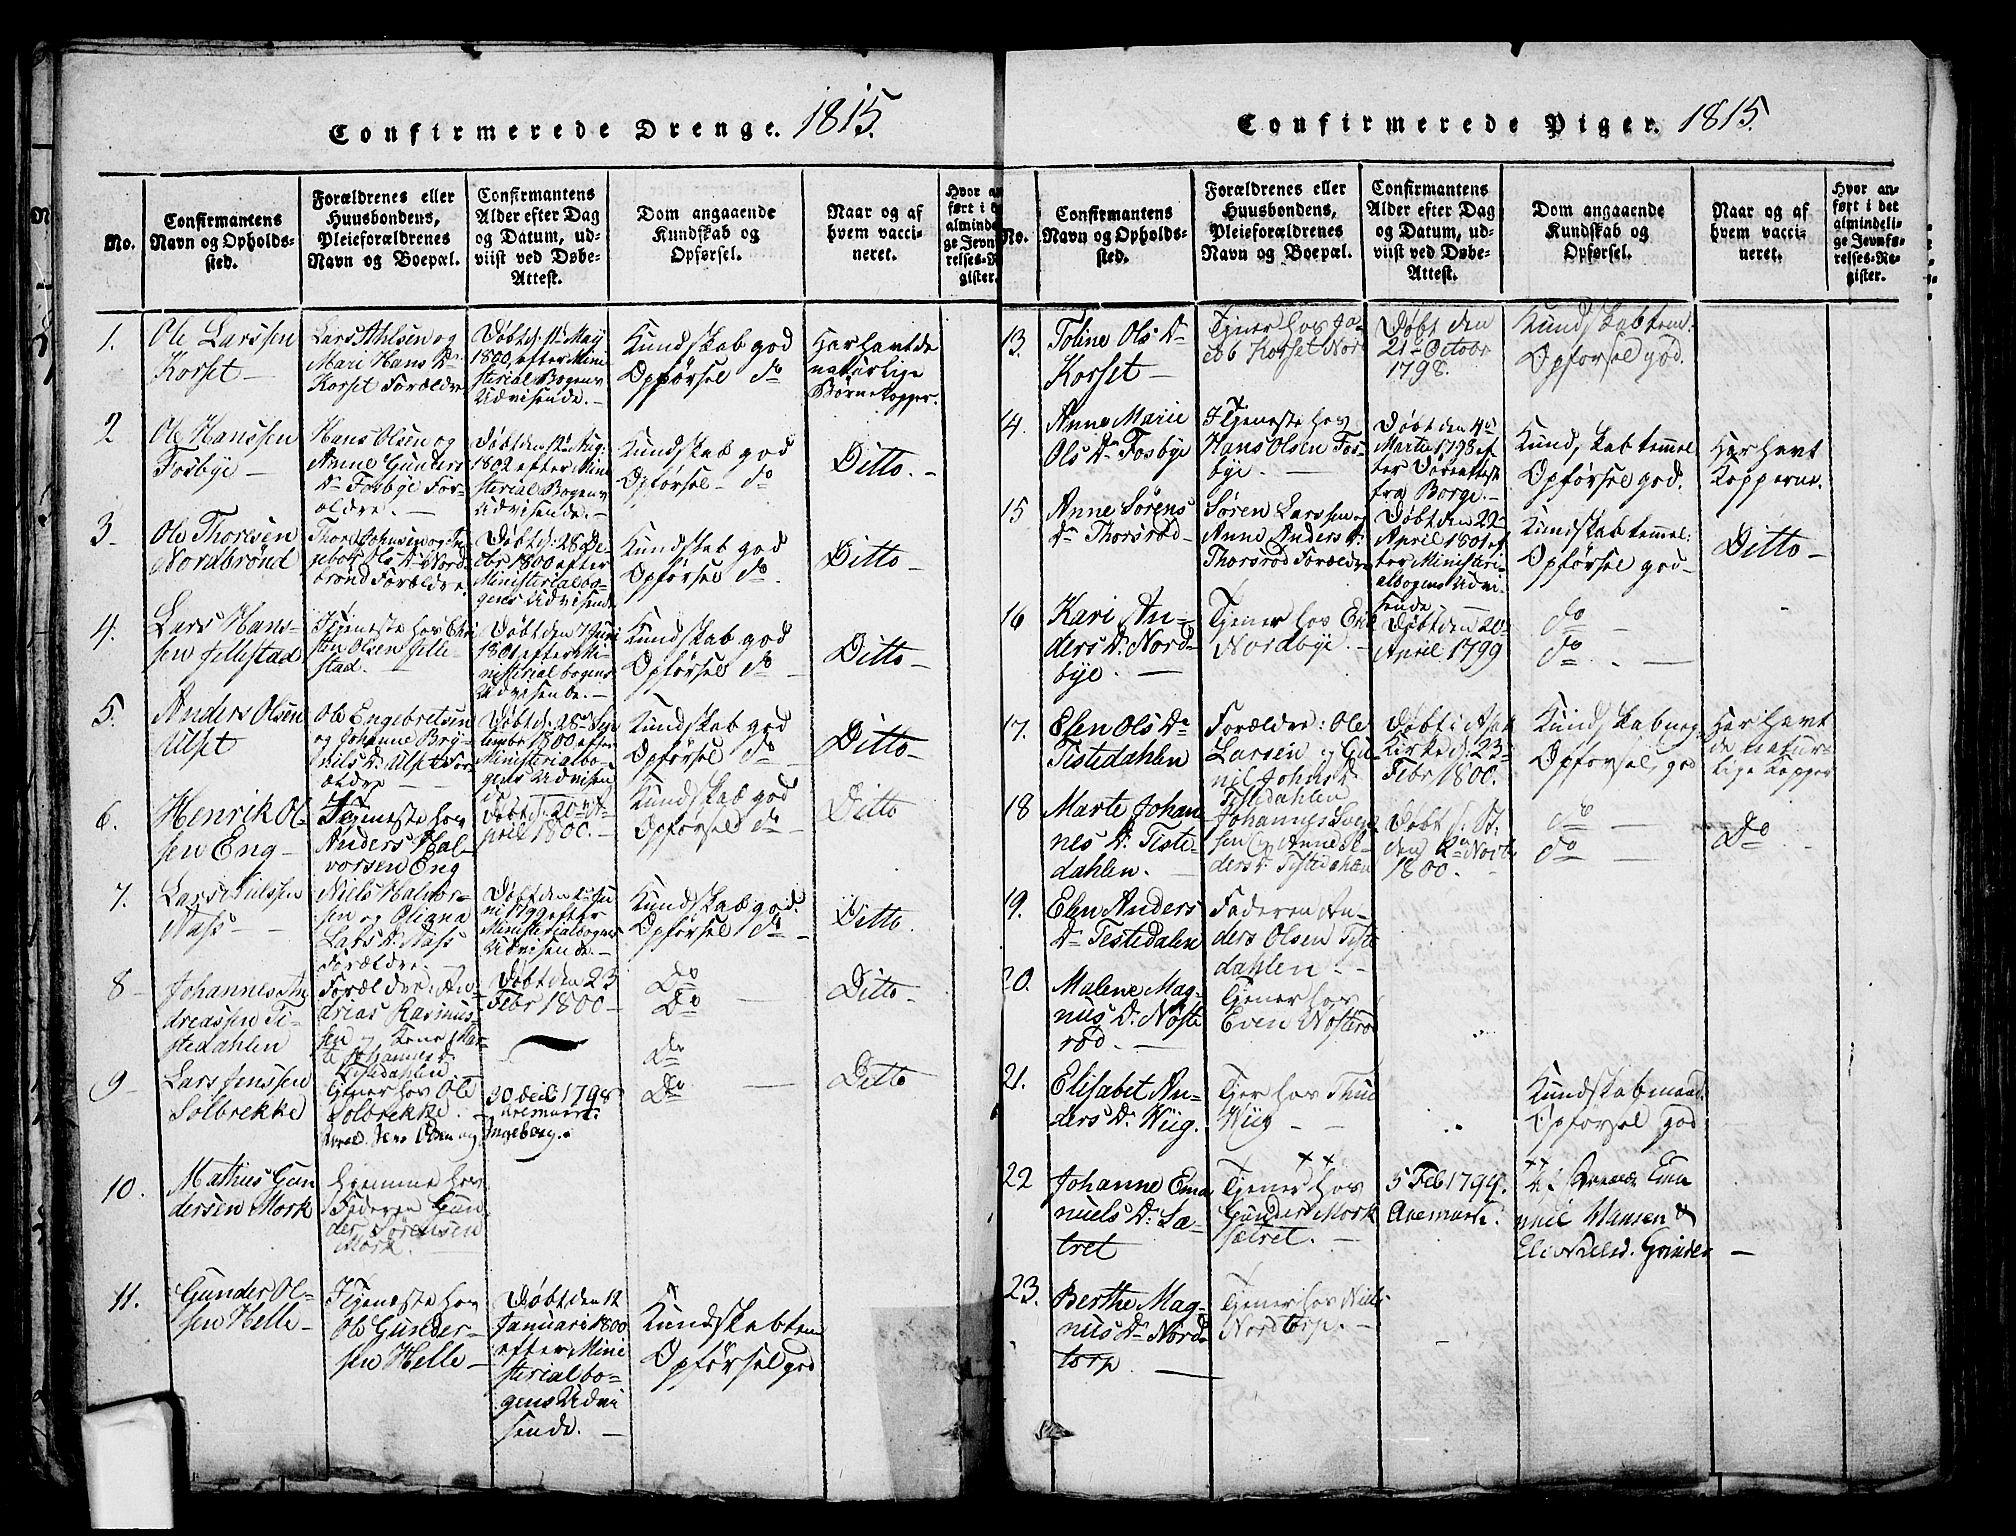 Confirmerede Drenge. 1815.
No.
Confirmantens
Navn og Opholds-
sted.
Forældrenes eller
Huusbondens,
Pleieforældrenes
Navn og Boepæl.
Confirmantens
Alder efter Dag
og Datum, ud-
viist ved Døbe-
Attest.
Dom angaaende
Kundskab og
Opførsel.
Naar og af
hvem vacci-
neret.
Hvor an
ført i d
almindel
ge Jevnf
relses-R
gister.
1.
Ole Larssen
Korset -
Lars Athlsen og
Mari Hans Dr
Korset Forældre
Døbt d: 11te May
1800, efter Mini
sterial Bogens
Udvisende. -
Kundskab god
Opførsel do
Har havt de
naturlige
Børnekopper.
2
Ole Hanssen
Fosbye -
Hans Olsen og
Anne Gunders
Dr Fosbye For-
ældre. -
Døbt den 12te Aug:
1802 efter Mini
sterial Bogens
Udvisende. -
Kundskab god
Opførsel - do
Ditto. -
3-
Ole Thoresen
Nordbrønd
Thore Johnsen og In
geborg Ols Dr Nord
brønd Forældre.
Døbt d: 28 De-
cbr 1800 efter
Ministerialbo-
gens Udvisend
Kundskab god
Opførsel do.
Ditto -
4.
Lars Hans-
sen Jellestad
I Tjeneste hos Chri
sten Olsen Jelle-
stad. -
Døbt den 7 Juni
1801 efter Mi-
nisterialbogens
Udvisende. -
Kundskab god
Opførsel do -
Ditto -
5.
Anders Olsen
Ulset
Ole Engebretsen
og Johanne Bry-
nils Dr Ulset For-
ældre -
Døbt d: 28de Sep
tembr 1800 efter
Ministerialbo-
gens Udvisen
de
Kundskab god
Opførsel do -
Ditto -
6.
Henrik Ol-
sen Eng -
I Tjeneste hos
Anders Hal-
vorsen Eng
Døbt d. 20de A-
pril 1800. -
Kundskab god
Opførsel do -
Ditto
7.
Lars Nielssen
Nass - -
Niels Halvor-
sen og Oliana
Lars Dr Nass
Forældre. -
Døbt den 1te Ju
ni 1799 efter
Ministerialbogens
Udvisende. -
Kundskab god.
Opførsel do -
Ditto.
8 -
Johannes An
dreassen Ti-
stedahlen
Forældre: An-
dreas Rasmus-
sen og Kone Mar-
te Johannes Dr
Tistedahlen
Døbt den 23
Febr 1800 -
Do
Do
Ditto -
9 -
Lars Jenssen
Solbrekke
Tjener hos Ole
Solbrekke.
Foræld. Jens Olsen og Ingeborg.
30 Decb 1798
Aremark.
Do
Do
Ditto
10.
Mathius Gun
dersen Mork
hjemme hos
Faderen Gun-
der Sørensen
Mork.
11.
Gunder Ol-
sen Helle -
I Tjeneste hos
Ole Gunder-
sen Helle -
Døbt den 12
Januari 1800
efter Mini
sterialbo-
gens Udvi
sende. -
Kundskab tem
Opførsel god
Confirmerede Piger. 1815.
No.
Confirmantens
Navn og Opholds-
sted.
Forældrenes eller
Huusbondens,
Pleieforældrenes
Navn og Boepæl.
Confirmantens
Alder efter Dag
og Datum, ud-
viist ved Døbe-
Attest.
Dom angaaende
Kundskab og
Opførsel.
Naar og af
hvem vacci-
neret.
Hvor an-
ført i det
almindeli-
ge Jevnfø-
relses-Re-
gister.
13.
Toline Ols Dr
Korset -
Tjener hos Ja-
cob Korset Nor
Døbt den
21 Octobr
1798.
Kundskab tem:
Opførsel god.
14.
Anne Marie
Ols Dr Fosbye
I Tjeneste hos
Hans Olsen Fos-
bye. -
Døbt den 4de
Martii 1798 ef
ter Døbeattest
fra Borge. -
Kundskab temmel.
Opførsel god.
Har havt
Kopperne.
15
Anne Sørens
Dr Thorsrød -
Søren Larssen og
Anne Anders Dr
Thorsrød Forældre
Døbt den 22de
April 1801 ef
ter Ministeri-
albogens Udvi-
sende -
Kundskab temmel:
Opførsel god -
Ditto -
16
Kari An-
ders Dr Nord-
bye. -
Tjener hos Erik
Nordbye. -
Døbt den 20de
April 1799
do -
do -
17.
Elen Ols Dr
Tistedahlen
Forældre: Ole
Larsen og Gu-
nil Johns Dr
Tistedahlen
Døbt i Ask
Kirke d: 23
Febr 1800.
Kundskab nog.
Opførsel, god
Har havt
de natur-
lige Kopper
18
Marte Johan
nes Dr Tiste-
dahlen. -
Johannes Svend
sen og Anne An-
ders Dr Tistedahlen
Døbt i. St.
den 2den Novbr
1800. -
do -
do -
Do
19.
Elen Anders
Dr Tistedalen
Faderen An-
ders Olsen Tiste
dahlen. -
20.
Malene Mag-
nus Dr Nøste
rød. -
Tjener hos
Even Nøsterø
21.
Elisabet An-
ders Dr Wiig.
Tjer hos Thue
Wiig - -
Kundskab maad.
Opførsel god
22
Johanne Ema
nuels Dr Sæ-
tret
Tjener hos
Gunder Mork
sætret. -
5 Feb 1799.
Aremark.
Emanuel Hansen &
23.
Berthe Mag-
nus Dr Nord-
torp. -
Tjener hos Niels
Nordtorp. -